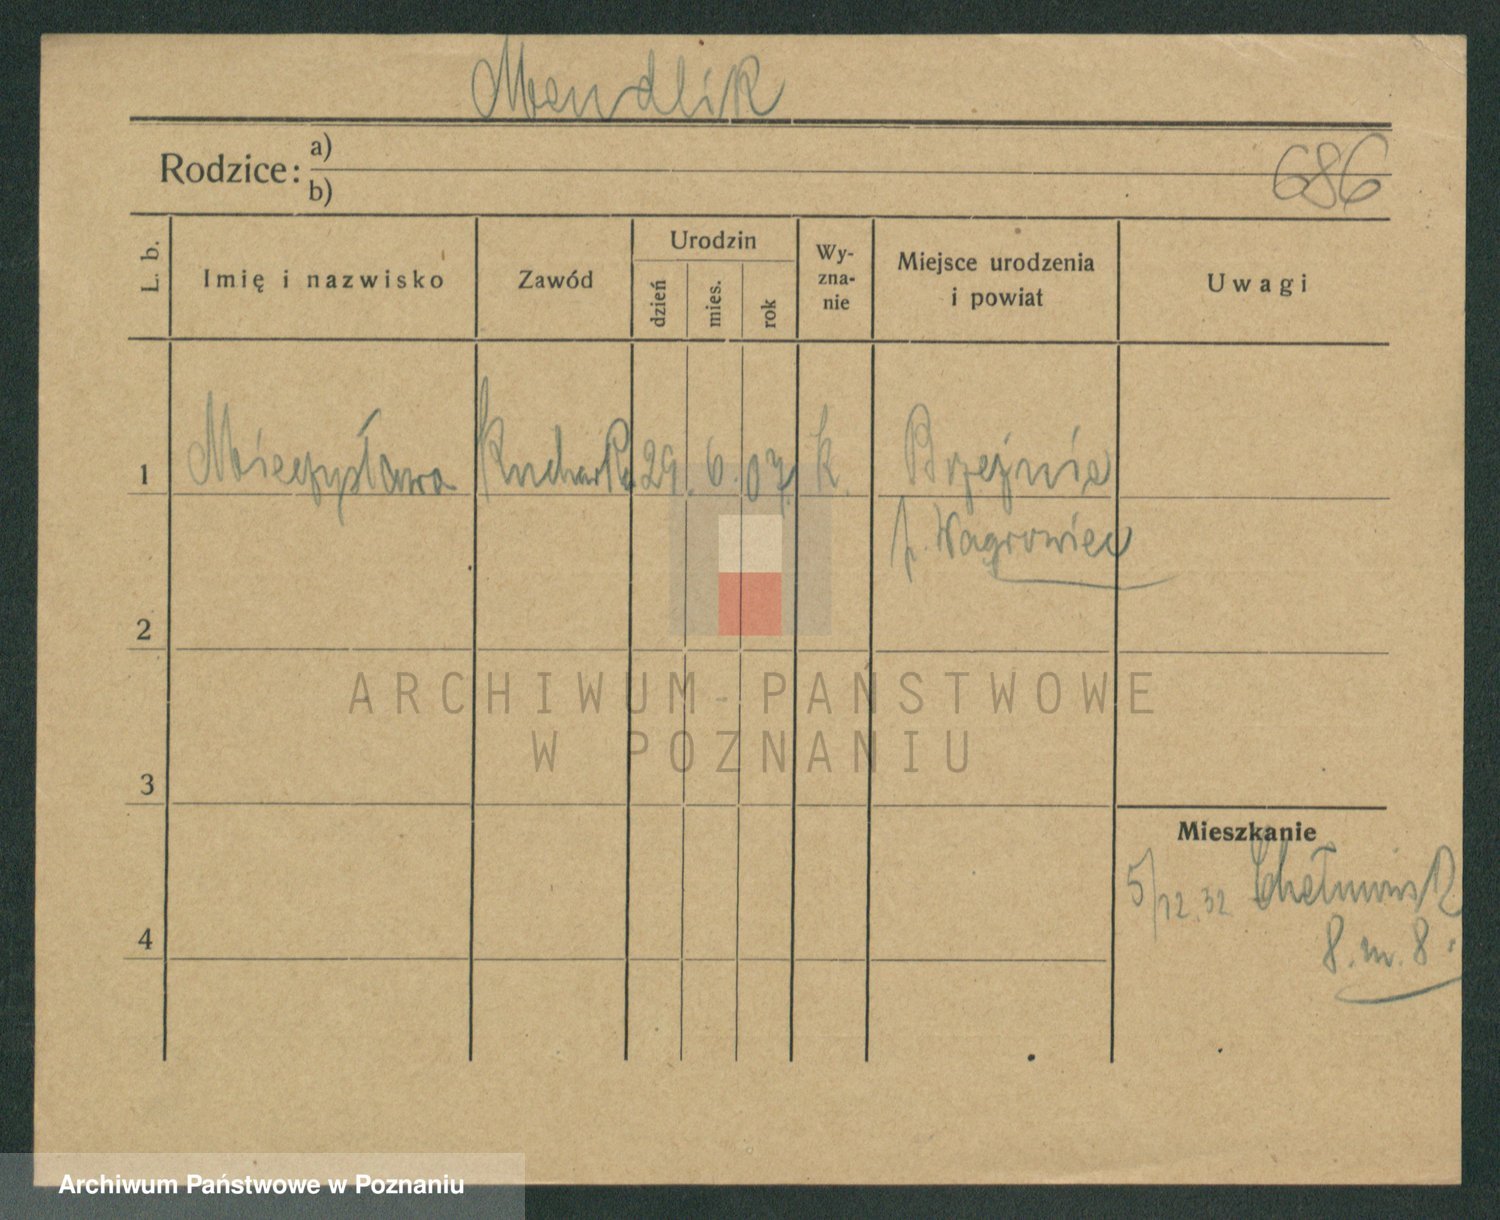 Mendlik
Rodzice: a)
b)
686
L. b.
Imię i nazwisko
Zawód
Urodzin
dzień
mies.
rok
Wy-
zna-
nie
Miejsce urodzenia
i powiat
Uwagi
1 Mieczysława Kucharka 29. 6. 07. k. Brzeźnie
p. Wągrowiec
2
3
4
Mieszkanie
5/12.32 Chełmińsk
8. m. 8.
ARCHIWUM PAŃSTWOWE
W POZNANIU
Archiwum Państwowe w Poznaniu